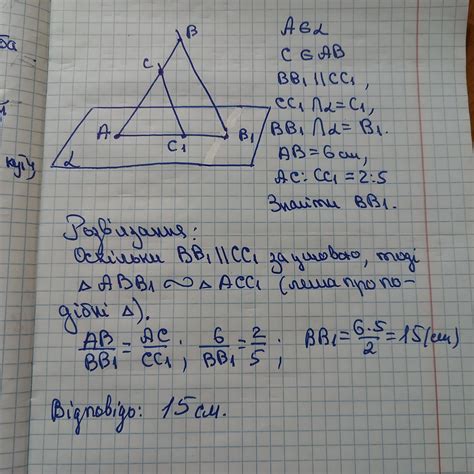 B
C
A
C₁
B₁
α
A∈α
C∈AB
BB₁ || CC₁,
CC₁ ∩ α = C₁,
BB₁ ∩ α = B₁.
AB = 6 см,
AC : CC₁ = 2:5
Знайти BB₁.
Розв'язання:
Оскільки BB₁ || CC₁ за умовою, тоді
△ABB₁ ∾ △ACC₁ (лема про по-
дібні △).
AB/BB₁ = AC/CC₁ ; 6/BB₁ = 2/5 ; BB₁ = 6·5/2 = 15 (см)
Відповідь: 15 см.
куту